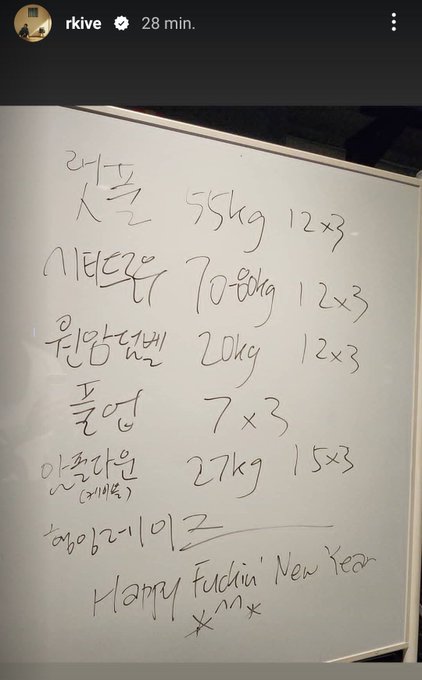 rkive 28 min.
랫풀 55kg 12x3
시티드로우 70-80kg 12x3
원암덤벨 20kg 12x3
풀업 7x3
암풀다운 27kg 15x3
(케이블)
행잉레이즈
Happy Fuckin' New Year
*^^*